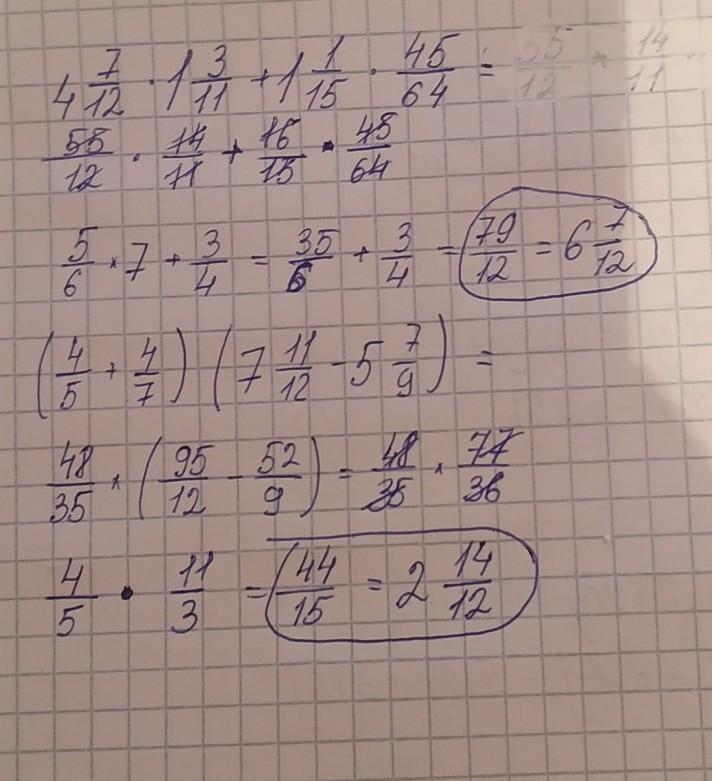 4 7/12 · 1 3/11 + 1 1/15 · 45/64 = 55/12 · 14/11
55/12 · 14/11 + 16/15 · 45/64
5/6 · 7 + 3/4 = 35/6 + 3/4 = 79/12 = 6 7/12
(4/5 + 4/7) (7 11/12 - 5 7/9) =
48/35 · (95/12 - 52/9) = 48/35 · 77/36
4/5 · 11/3 = 44/15 = 2 14/12